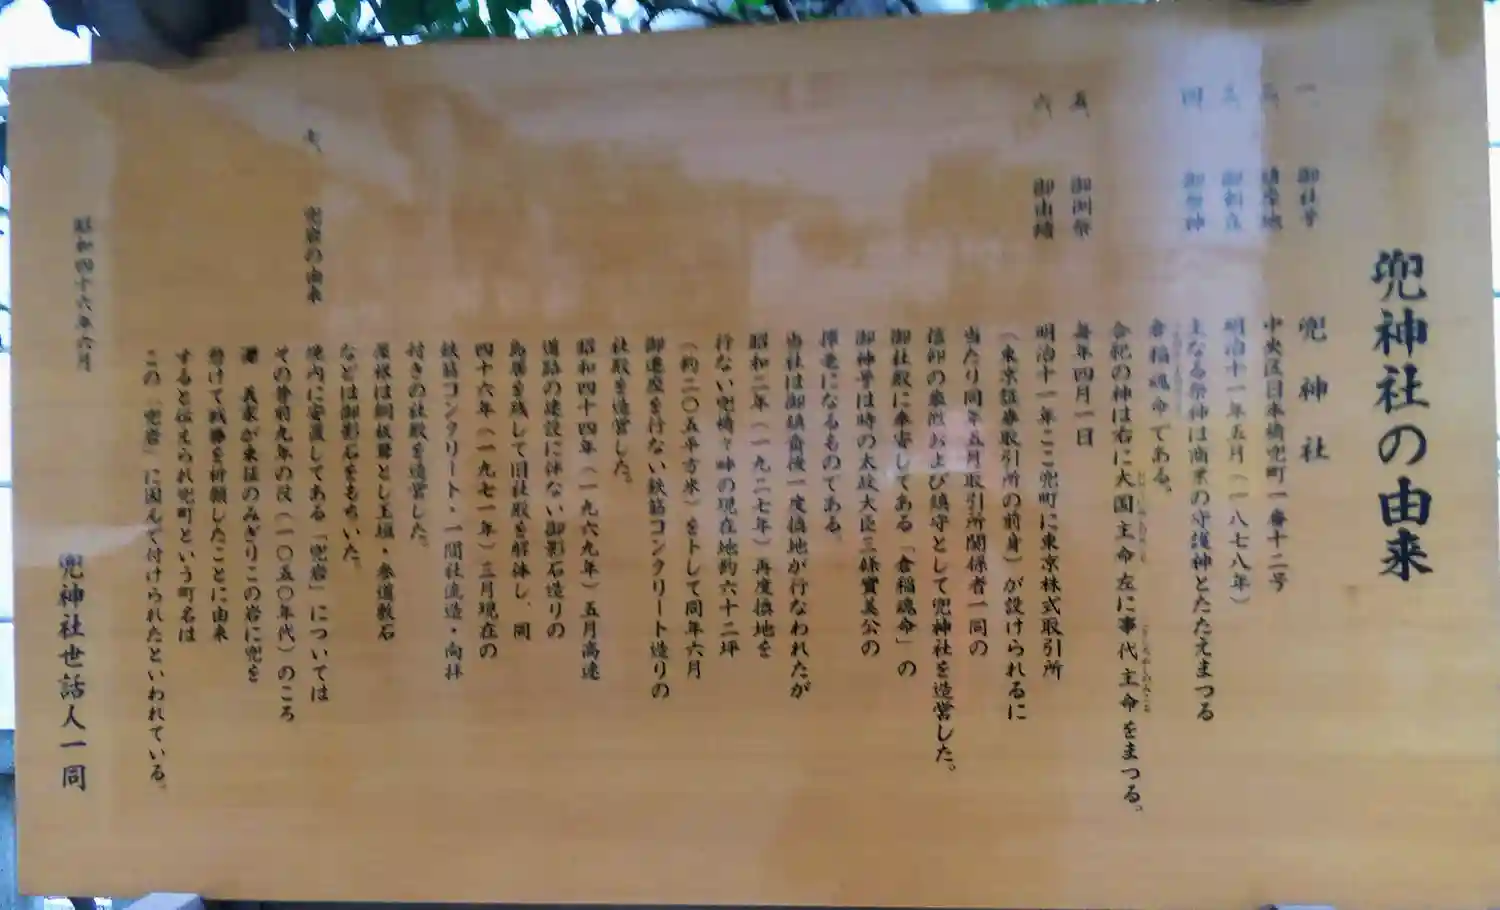 兜神社の由来
一、 御社号 兜神社
二、 鎮座地 中央区日本橋兜町一番十二号
三、 御創立 明治十一年五月（一八七八年）
四、 御祭神 主なる祭神は商業の守護神とたたえまつる
倉稲魂命である。
合祀の神は右に大国主命左に事代主命をまつる。
五、 御例祭 毎年四月一日
六、 御由緒 明治十一年ここ兜町に東京株式取引所
（東京証券取引所の前身）が設けられるに
当たり同年五月取引所関係者一同の
信仰の象徴および鎮守として兜神社を造営した。
御社殿に奉安してある「倉稲魂命」の
御神号は時の太政大臣三條實美公の
揮毫になるものである。
当社は御鎮斎後一度換地が行なわれたが
昭和二年（一九二七年）再度換地を
行ない兜橋々畔の現在地約六十二坪
（約二〇五平方米）を卜して同年六月
御遷座を行ない鉄筋コンクリート造りの
社殿を造営した。
昭和四十四年（一九六九年）五月高速
道路の建設に伴ない御影石造りの
鳥居を残して旧社殿を解体し、同
四十六年（一九七一年）三月現在の
鉄筋コンクリート・一間社流造・向拝
付きの社殿を造営した。
屋根は銅板葺とし玉垣・参道敷石
などは御影石をもちいた。
七、 兜岩の由来 境内に安置してある「兜岩」については
その昔前九年の役（一〇五〇年代）のころ
源 義家が東征のみぎりこの岩に兜を
懸けて戦勝を祈願したことに由来
すると伝えられ兜町という町名は
この「兜岩」に因んで付けられたといわれている。
昭和四十六年六月
兜神社世話人一同